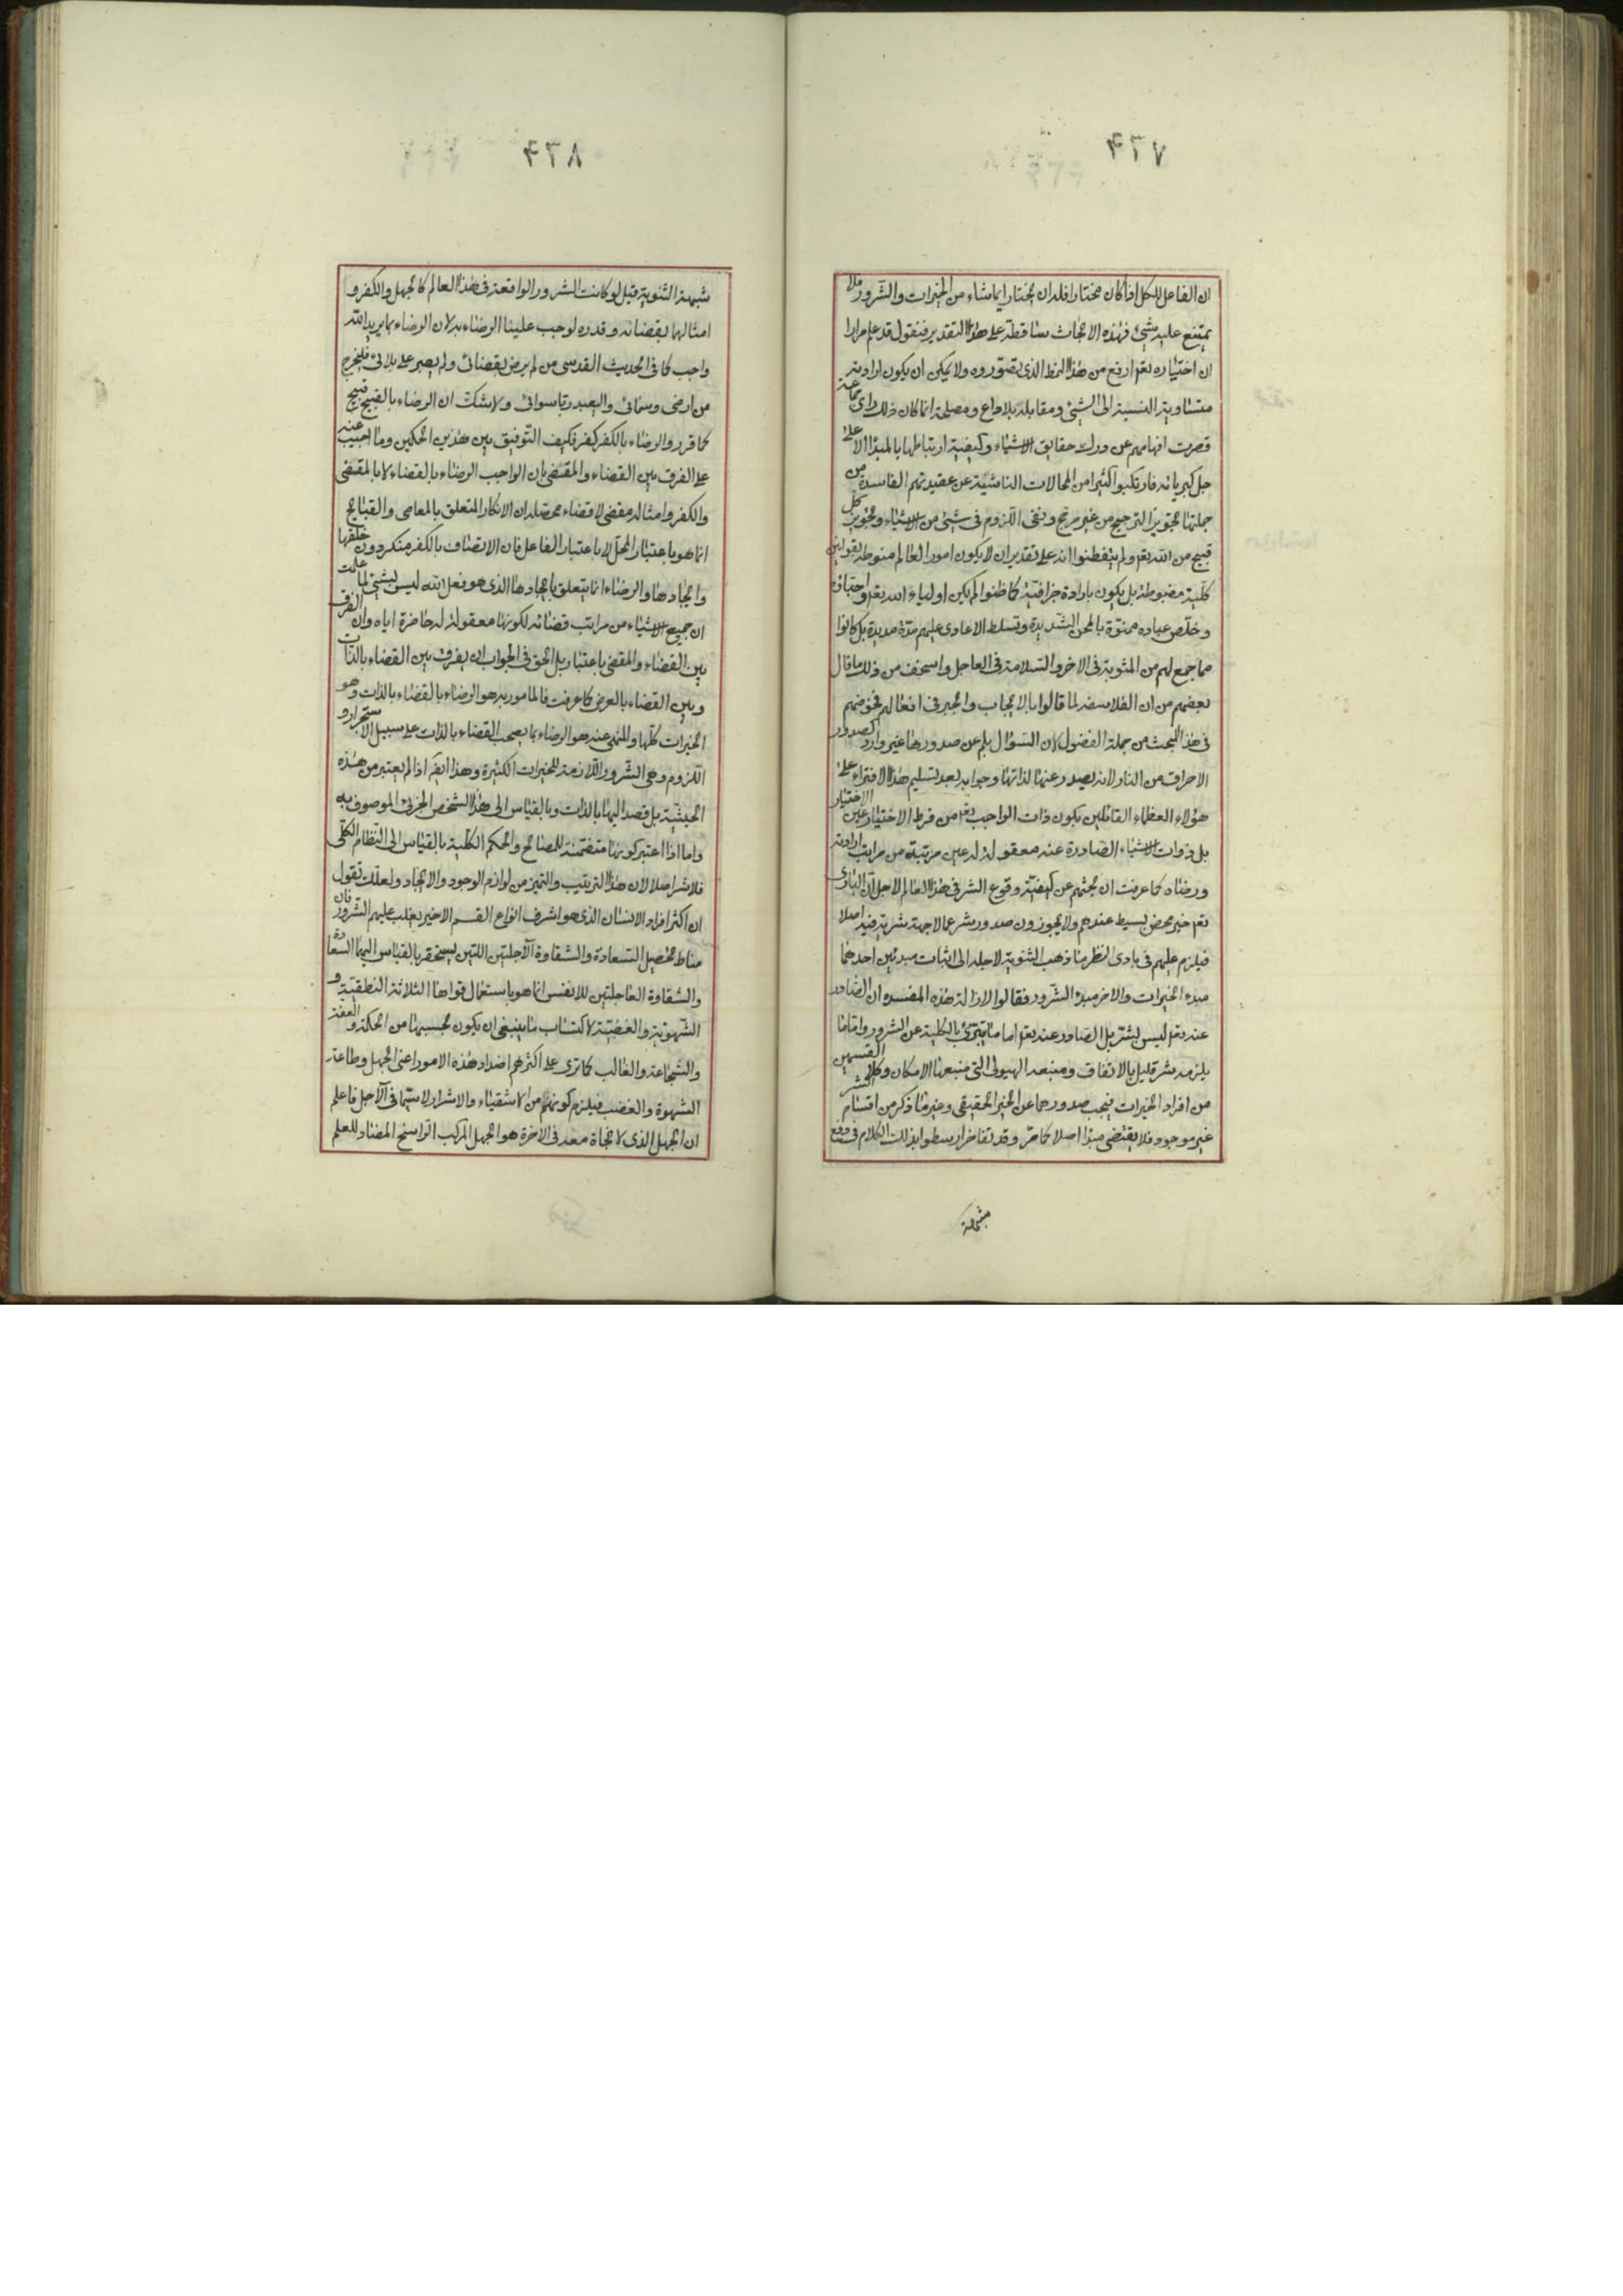 ٧٢٤
ان الفاعل للكل اذا كان مختارا فله ان يختار ايما شاء من الخيرات والشرور فلا
يمتنع عليه شئ فهذه الابحاث ساقطة على هذا التقدير فنقول قد علم مرارا
ان اختياره تعم ارفع من هذا النمط الذى تصوروه ولا يمكن ان يكون ارادته
متساوية النسبة الى الشئ ومقابله بلا داع ومصلحة انما كان ذلك راى جماعة
قصرت افهامهم عن درك حقايق الاشياء وكيفية ارتباطها بالمبدا الاعلى
جل كبريائه فارتكبوا كثيرا من المحالات الناشية عن عقيدتهم الفاسدة من
جملتها تجويز الترجيح من غير مرجح ونفى اللزوم فى شئ من الاشياء وتجويز كل
قبيح من الله تعم ولم يتفطنوا انه على تقدير ان لا يكون امور العالم منوطة بقوانين
كلية مضبوطة بل يكون بارادة جزافية كما ظنوا لم يكن اولياء الله تعم واحباؤه
وخلص عباده ممنوة بالمحن الشديدة وتسلط الاعادى عليهم مدة مديدة بل كانوا
مما جمع لهم من المثوبة فى الاخر والسلامة فى العاجل واسخف من ذلك ما قال
بعضهم من ان الفلاسفه لما قالوا بالايجاب والجبر فى افعاله فخوضهم
فى هذا البحث من جملة الفضول لان السؤال بلم عن صدورها غير وارد كصدور
الاحراق من النار لانه يصدر عنها لذاتها وجوابه بعد تسليم هذا الافتراء على
هؤلاء العظماء القائلين بكون ذات الواجب تعم من فرط الاختيار عين الاختيار
بل ذوات الاشياء الصادرة عنه معقولة له عين مرتبة من مراتب ارادته
ورضاه كما عرفت ان بحثهم عن كيفية وقوع الشر فى هذا العالم لاجل ان البارى
تعم خير محض بسيط عندهم ولا يجوزون صدور شر عما لا جهة شرية فيه اصلا
فيلزم عليهم فى بادى النظر ما ذهب الثنوية لاجله الى اثبات مبدئين احدهما
مبدء الخيرات والاخر مبدء الشرور فقالوا لازالة هذه المفسده ان الصادر
عنه تعم ليس بشر بل الصادر عنه تعم اما ما يتبرئ بالكلية عن الشرور واما ما
يلزمه شر قليل بالاتفاق ومنبعه الهيولى التى منبعها الامكان وكلا القسمين
من افراد الخيرات فيجب صدورهما عن الخير الحقيقى وغير ما ذكر من اقسام الشر
غير موجود فلا يقتضى مبدا اصلا كما مر وقد تفاخر ارسطو ابذلك الكلام فى دفع
٨٢٤
شبهة الثنوية قيل لو كانت الشرور الواقعة فى هذا العالم كالجهل والكفر و
امثالهما بقضائه وقدره لوجب علينا الرضاء به لان الرضاء بما يريد الله
واجب كما فى الحديث القدسى من لم يرض بقضائى ولم يصبر على بلائى فليخرج
من ارضى وسمائى وليعبد ربا سوائى ولا شك ان الرضاء بالقبيح قبيح
كما قرروا الرضاء بالكفر كفر فكيف التوفيق بين هذين الحكمين وما اجيب عنه
على الفرق بين القضاء والمقتضى بان الواجب الرضاء بالقضاء لا بالمقضى
والكفر وامثاله مقضى لا قضاء محصله ان الانكار المتعلق بالمعاصى والقبايح
انما هو باعتبار المحل لا باعتبار الفاعل فان الاتصاف بالكفر منكر دون خلقها
وايجادها والرضاء انما يتعلق بايجادها الذى هو فعل الله ليس بشئ لما علمت
ان جميع الاشياء من مراتب قضائه لكونها معقولة له حاضرة اياه وان الفرق
بين القضاء والمقضى باعتبار بل الحق فى الجواب ان يفرق بين القضاء بالذات
وبين القضاء بالعرض كما عرفت فالمامور به هو الرضاء بالقضاء بالذات وهو
الخيرات كلها والمنهى عنه هو الرضاء بما يصحب القضاء بالذات على سبيل الاستجرار و
اللزوم وهى الشرور اللازمة للخيرات الكثيرة وهذا ايضا اذا لم يعتبر من هذه
الحيثية بل قصد اليها بالذات وبالقياس الى هذا الشخص الجزئى الموصوف به
واما اذا اعتبر كونها متضمنة للمصالح والحكم الكلية بالقياس الى النظام الكلى
فلا شر اصلا لان هذا الترتيب والتميز من لوازم الوجود والايجاد ولعلك تقول
ان اكثر افراد الانسان الذى هو اشرف انواع القسم الاخير يغلب عليهم الشرور فان
مناط تحصيل السعادة والشقاوة الآجلتين اللتين يستحقر بالقياس اليهما السعادة
والشقاوة العاجلتين للانفس انما هو باستعمال قواها الثلاثة النطقية و
الشهوية والغضبية لاكتساب ما ينبغى ان يكون بحسبها من الحكمة والعفة
والشجاعة والغالب كما ترى على اكثرهم اضداد هذه الامور اعنى الجهل وطاعة
الشهوة والغضب فيلزم كونهم من الاشقياء والاشرار لا سيما فى الآجل فاعلم
ان الجهل الذى لا نجاة معه فى الاخرة هو الجهل المركب الراسخ المضاد للعلم